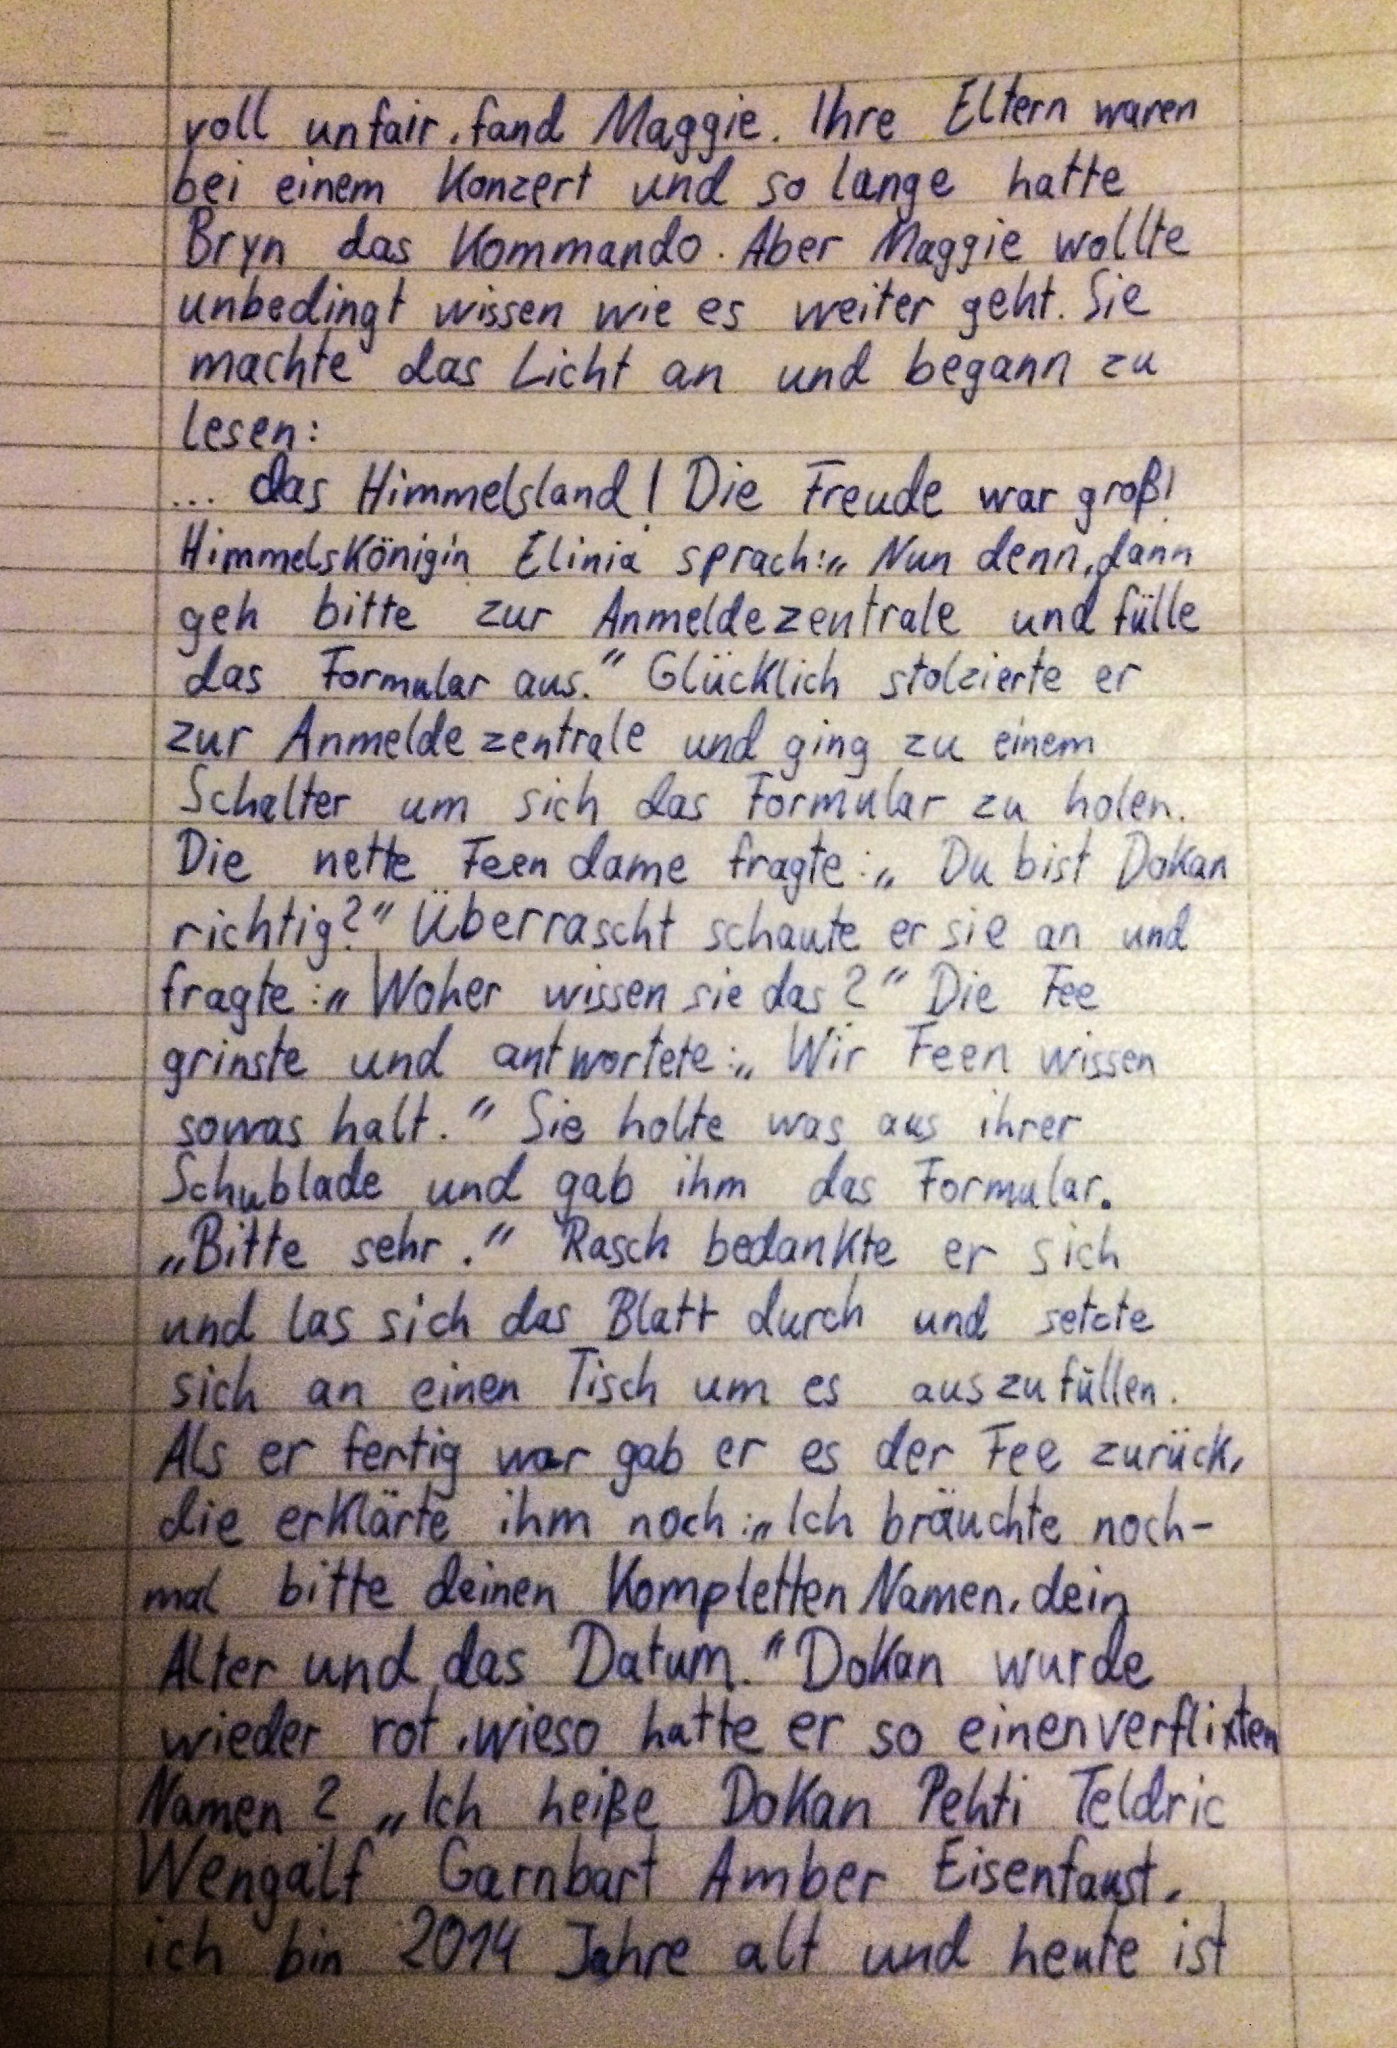 voll unfair, fand Maggie. Ihre Eltern waren
bei einem Konzert und so lange hatte
Bryn das Kommando. Aber Maggie wollte
unbedingt wissen wie es weiter geht. Sie
machte das Licht an und begann zu
lesen:
... das Himmelsland! Die Freude war groß!
Himmelskönigin Elinia sprach:„ Nun denn, dann
geh bitte zur Anmeldezentrale und fülle
das Formular aus.“ Glücklich stolzierte er
zur Anmeldezentrale und ging zu einem
Schalter um sich das Formular zu holen.
Die nette Feendame fragte:„ Du bist Dokan
richtig?“ Überrascht schaute er sie an und
fragte:„ Woher wissen sie das?“ Die Fee
grinste und antwortete:„ Wir Feen wissen
sowas halt.“ Sie holte was aus ihrer
Schublade und gab ihm das Formular.
„Bitte sehr.“ Rasch bedankte er sich
und las sich das Blatt durch und setzte
sich an einen Tisch um es auszufüllen.
Als er fertig war gab er es der Fee zurück,
die erklärte ihm noch:„Ich bräuchte noch-
mal bitte deinen kompletten Namen, dein
Alter und das Datum.“ Dokan wurde
wieder rot, wieso hatte er so einen verflixten
Namen? „Ich heiße Dokan Pehti Teldric
Wengalf Garnbart Amber Eisenfaust,
ich bin 2014 Jahre alt und heute ist